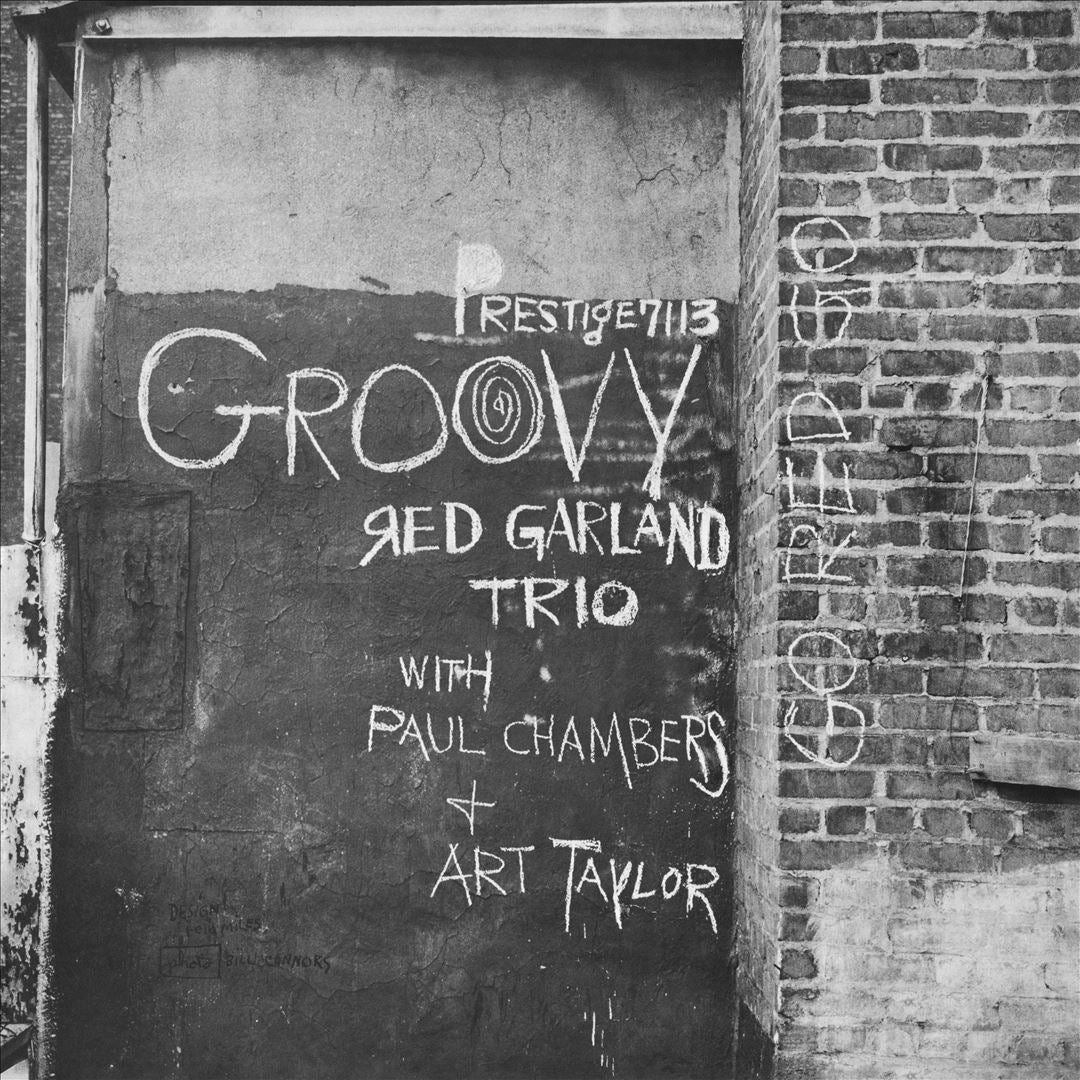 PRESTIGE 7113
GROOVY
RED GARLAND
TRIO
WITH
PAUL CHAMBERS
+
ART TAYLOR
GO RED GO
DESIGN
REID MILES
photo BILL CONNORS